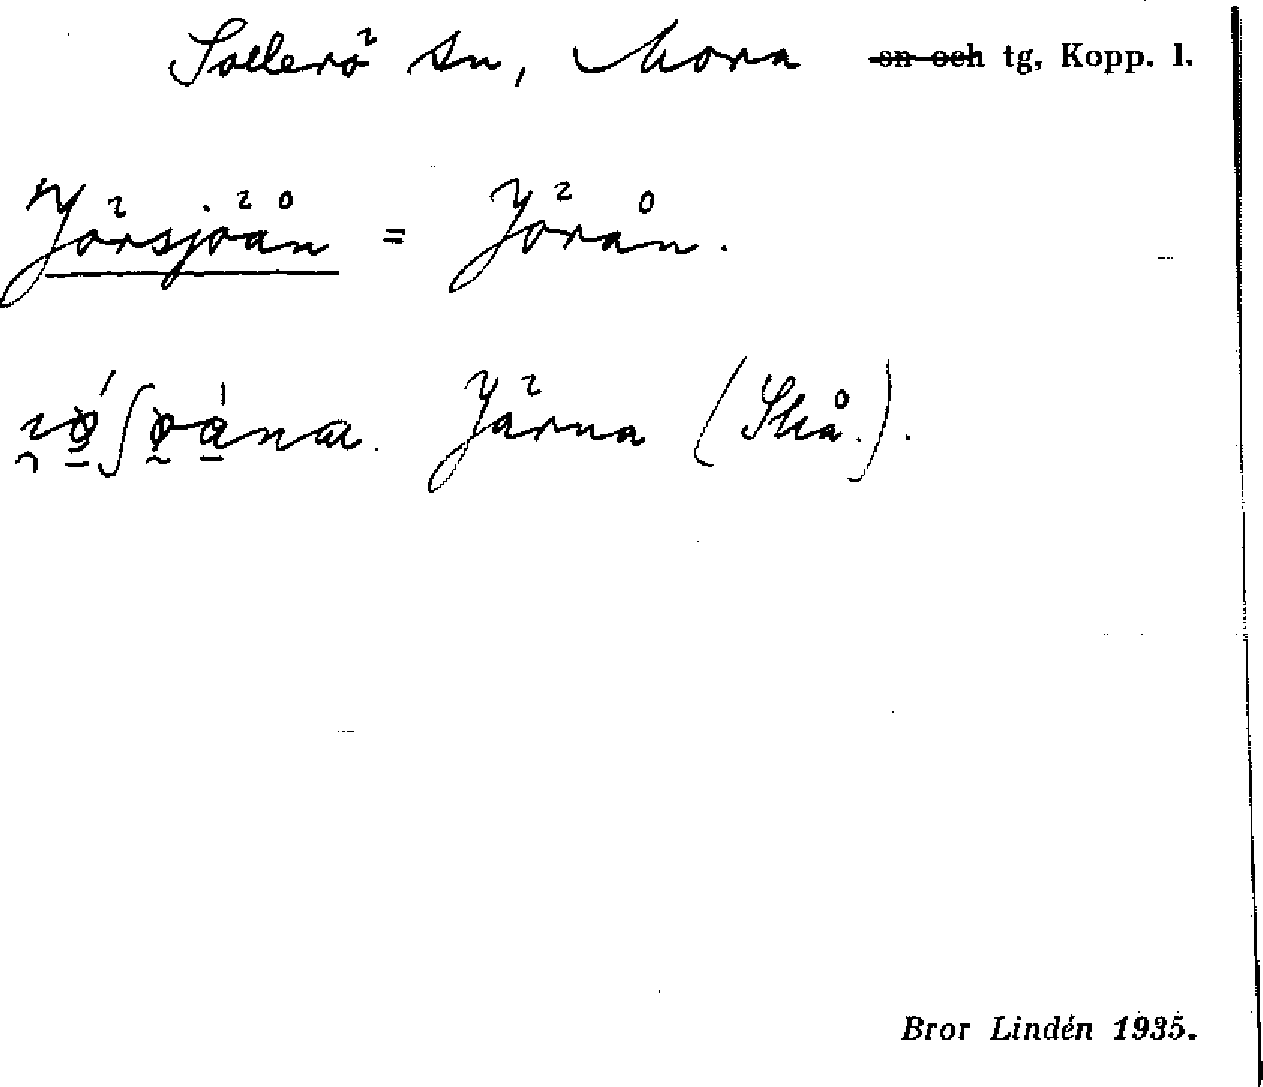 Sollerö sn, Mora sn och tg, Kopp. l.
Yörsjöån = Yörån.
Yärna (Skå.).
Bror Lindén 1935.